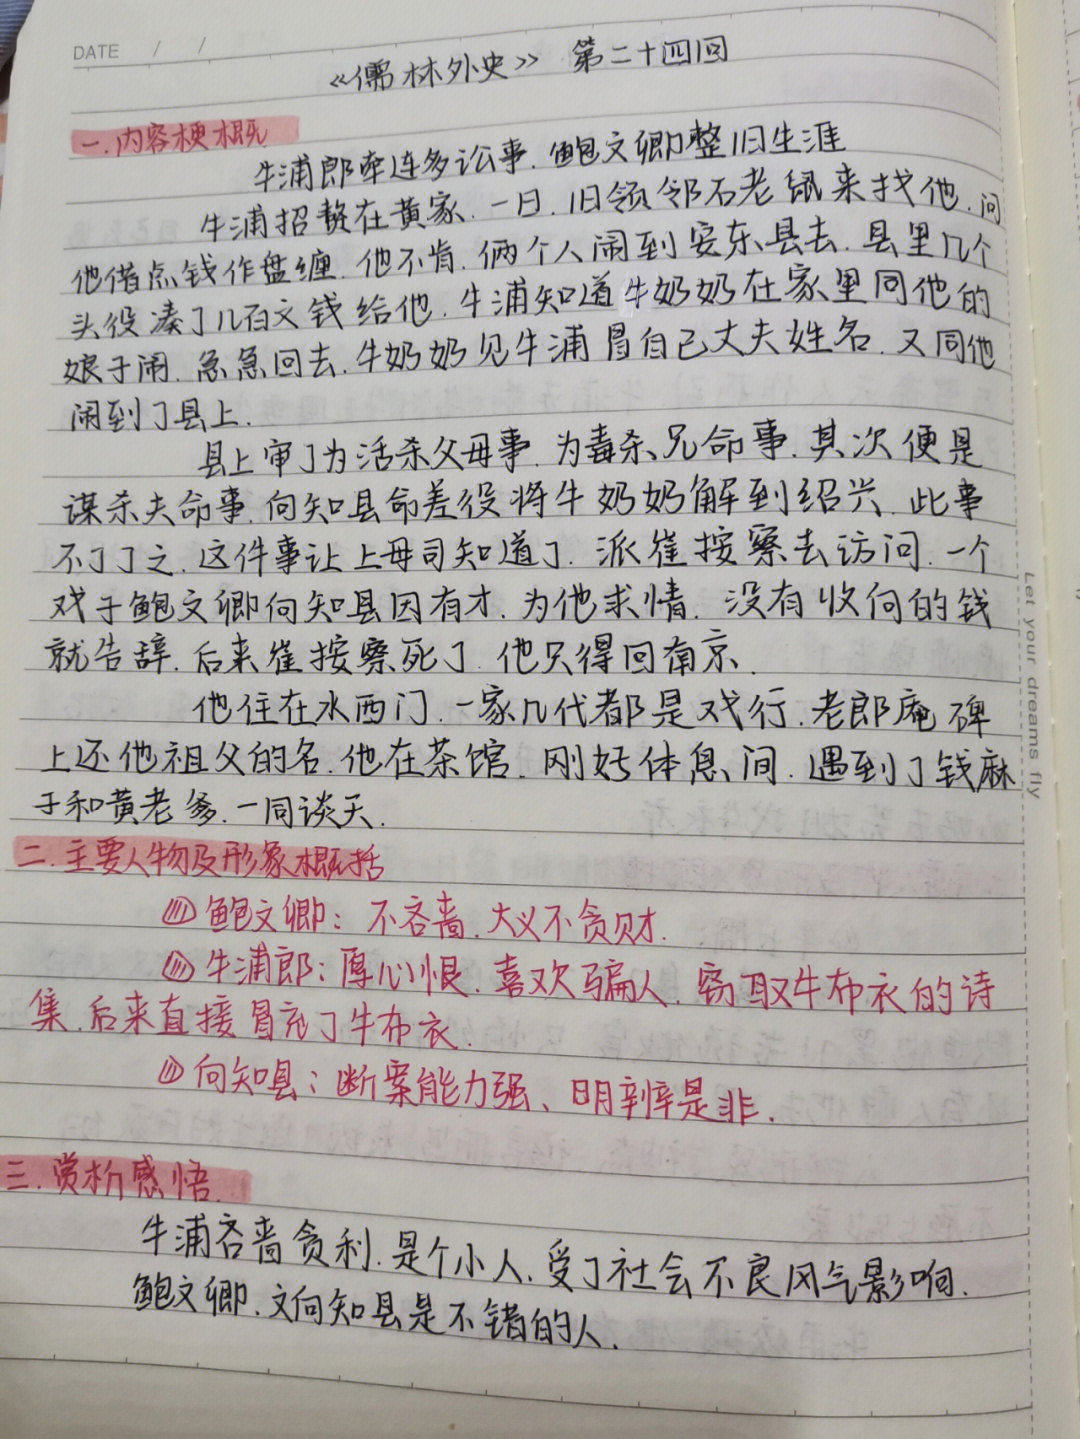 DATE / /
《儒林外史》 第二十四回
一.内容梗概
牛浦郎牵连多讼事.鲍文卿整旧生涯
牛浦招赘在黄家.一日.旧领邻石老鼠来找他.问
他借点钱作盘缠.他不肯.俩个人闹到安东县去.县里几个
头役凑了几百文钱给他.牛浦知道牛奶奶在家里同他的
娘子闹.急急回去.牛奶奶见牛浦冒自己丈夫姓名.又同他
闹到了县上.
县上审了为活杀父母事.为毒杀兄命事.其次便是
谋杀夫命事.向知县命差役将牛奶奶解到绍兴.此事
不了了之.这件事让上毋司知道了.派崔按察去访问.一个
戏子鲍文卿向知县因有才.为他求情.没有收向的钱
就告辞.后来崔按察死了.他只得回南京.
他住在水西门.一家几代都是戏行.老郎庵碑
上还他祖父的名.他在茶馆.刚好体息间.遇到了钱麻
子和黄老爹.一同谈天.
二.主要人物及形象概括
① 鲍文卿：不吝啬.大义不贪财.
② 牛浦郎：厚心恨.喜欢骗人.窃取牛布衣的诗
集.后来直接冒充了牛布衣.
③ 向知县：断案能力强、明辨是非.
三.赏析感悟.
牛浦吝啬贪利.是个小人.受了社会不良风气影响.
鲍文卿.文向知县是不错的人.
Let your dreams fly